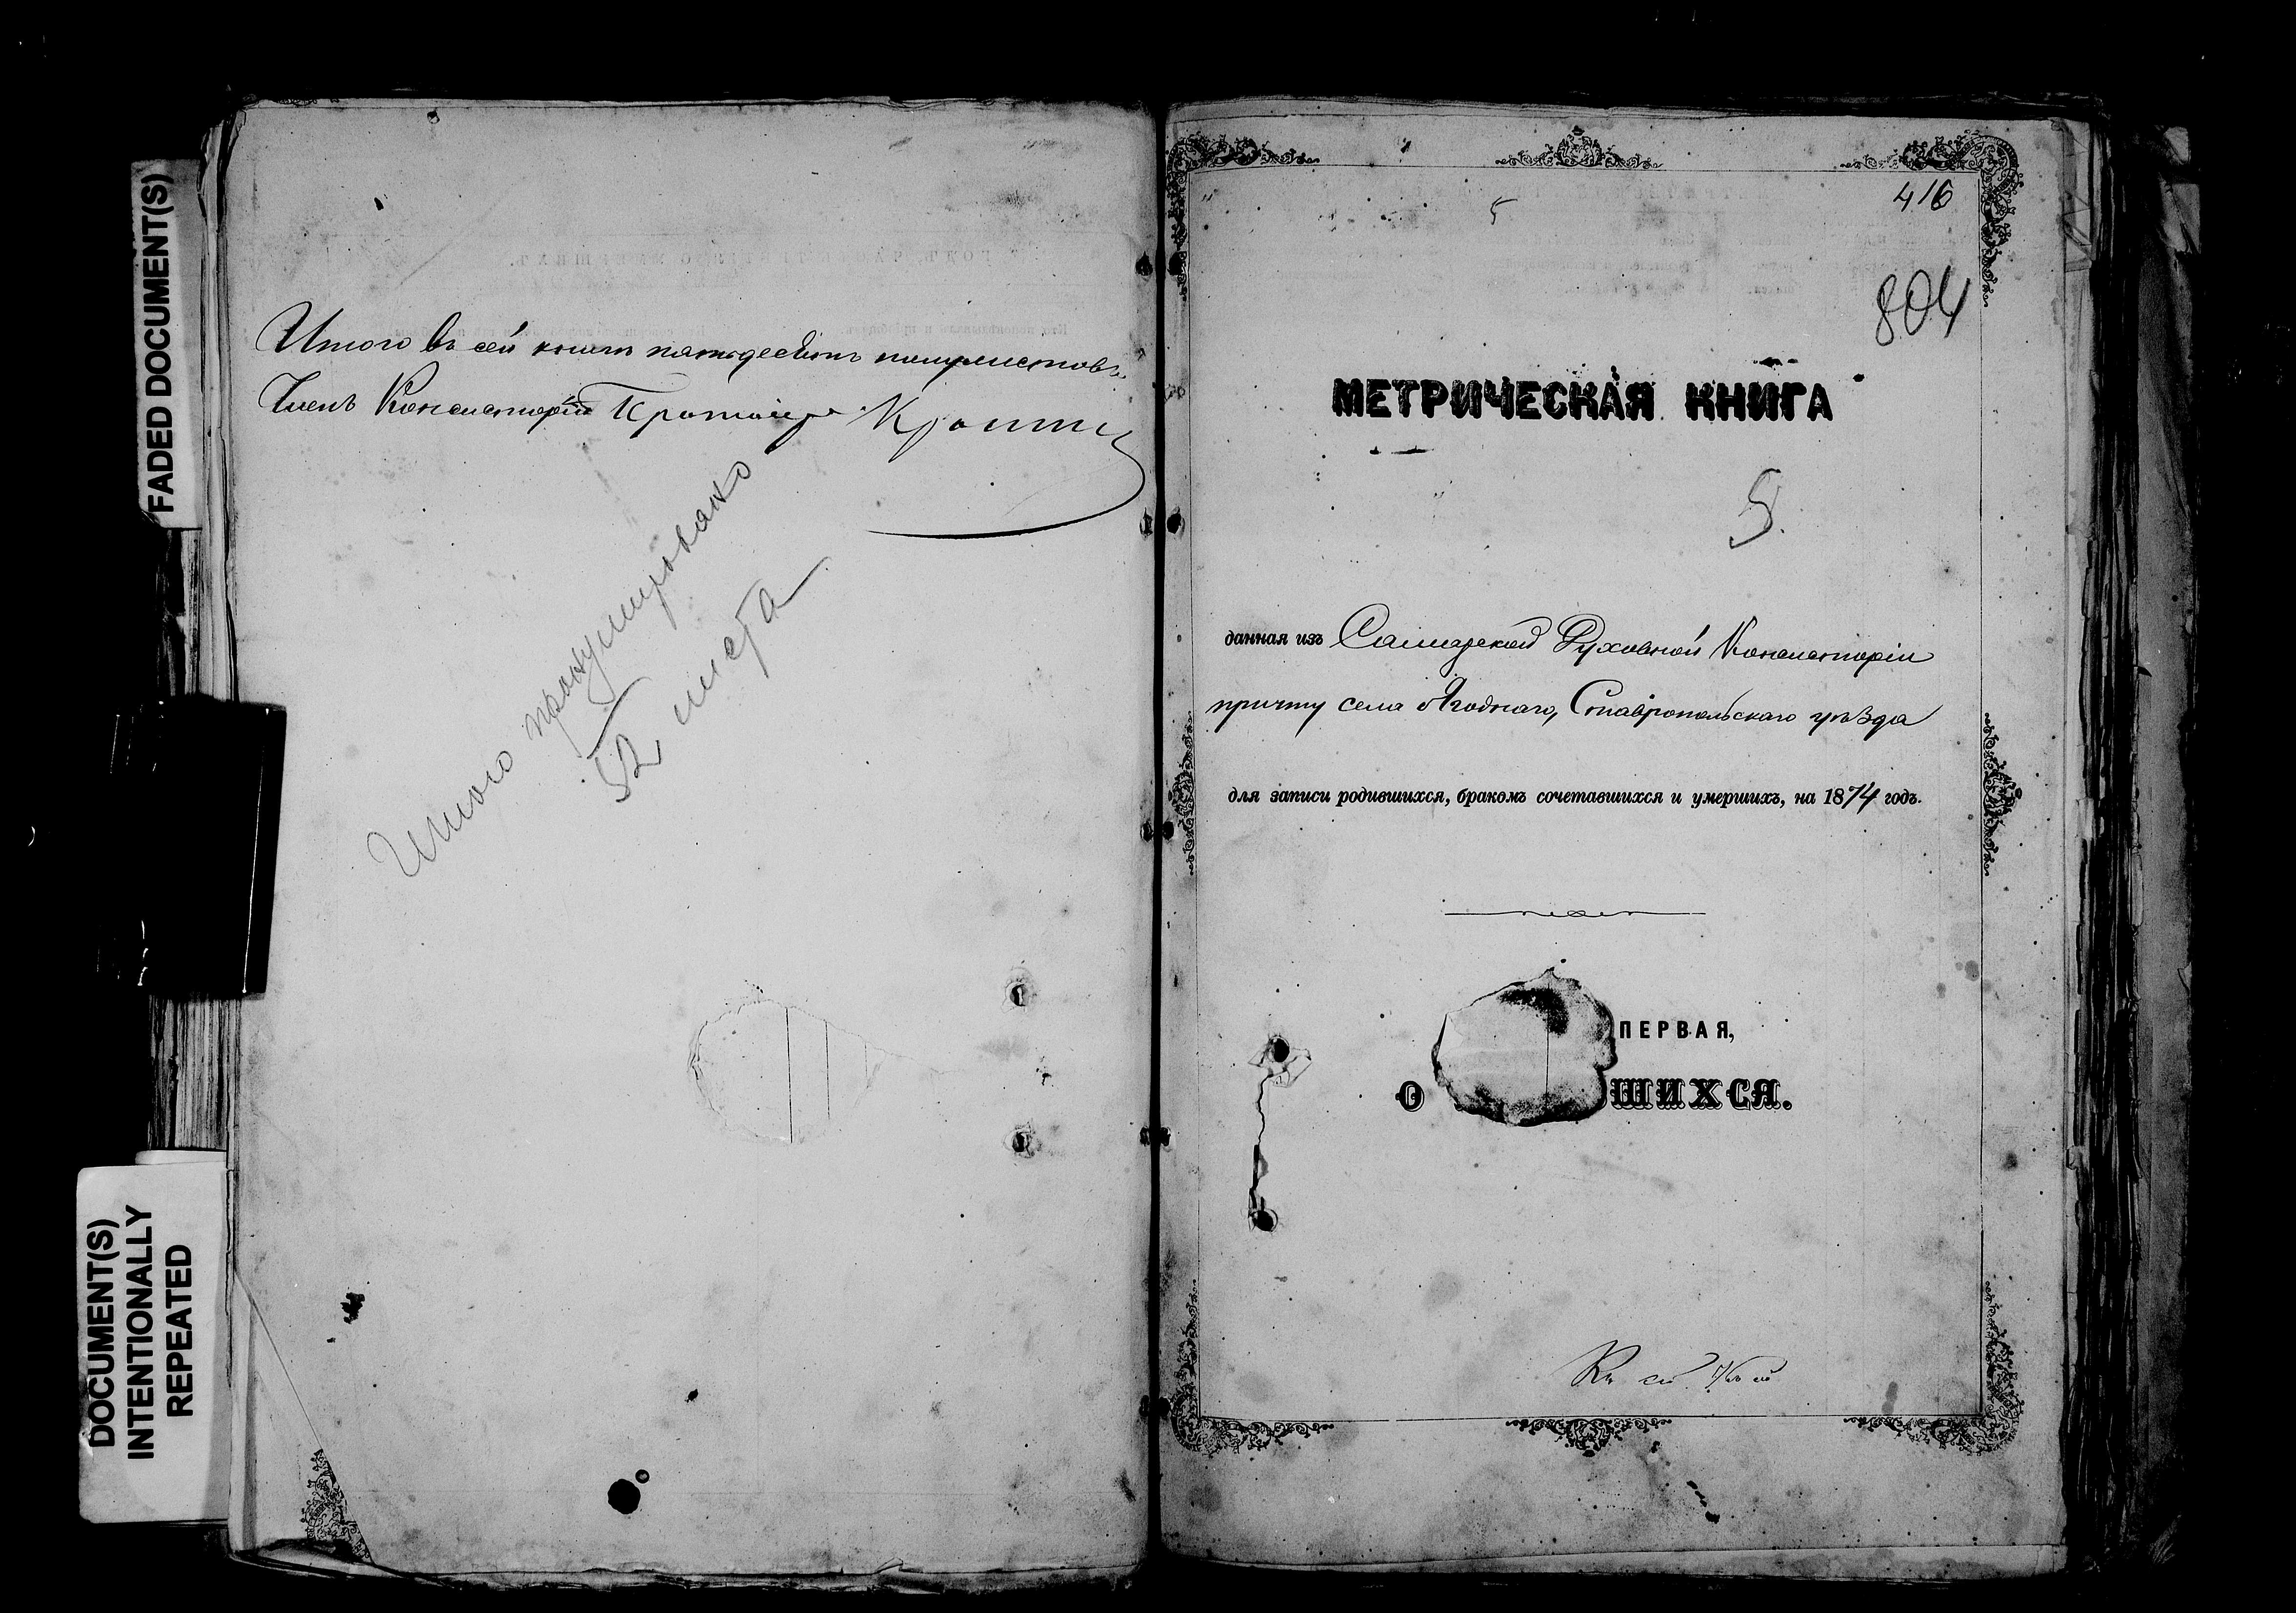 FADED DOCUMENT(S)
DOCUMENT(S)
INTENTIONALLY
REPEATED
Итого въ сей книгѣ пятьдесятъ полулистовъ
Членъ Консисторіи Протоіерей
Итого пронумеровано
52 листа
416
5
804
МЕТРИЧЕСКАЯ КНИГА
5.
данная изъ Самарской Духовной Консисторіи
причту села Ягоднаго, Ставропольскаго уѣзда
для записи родившихся, бракомъ сочетавшихся и умершихъ, на 1874 годъ.
ПЕРВАЯ,
О ШИХСЯ.